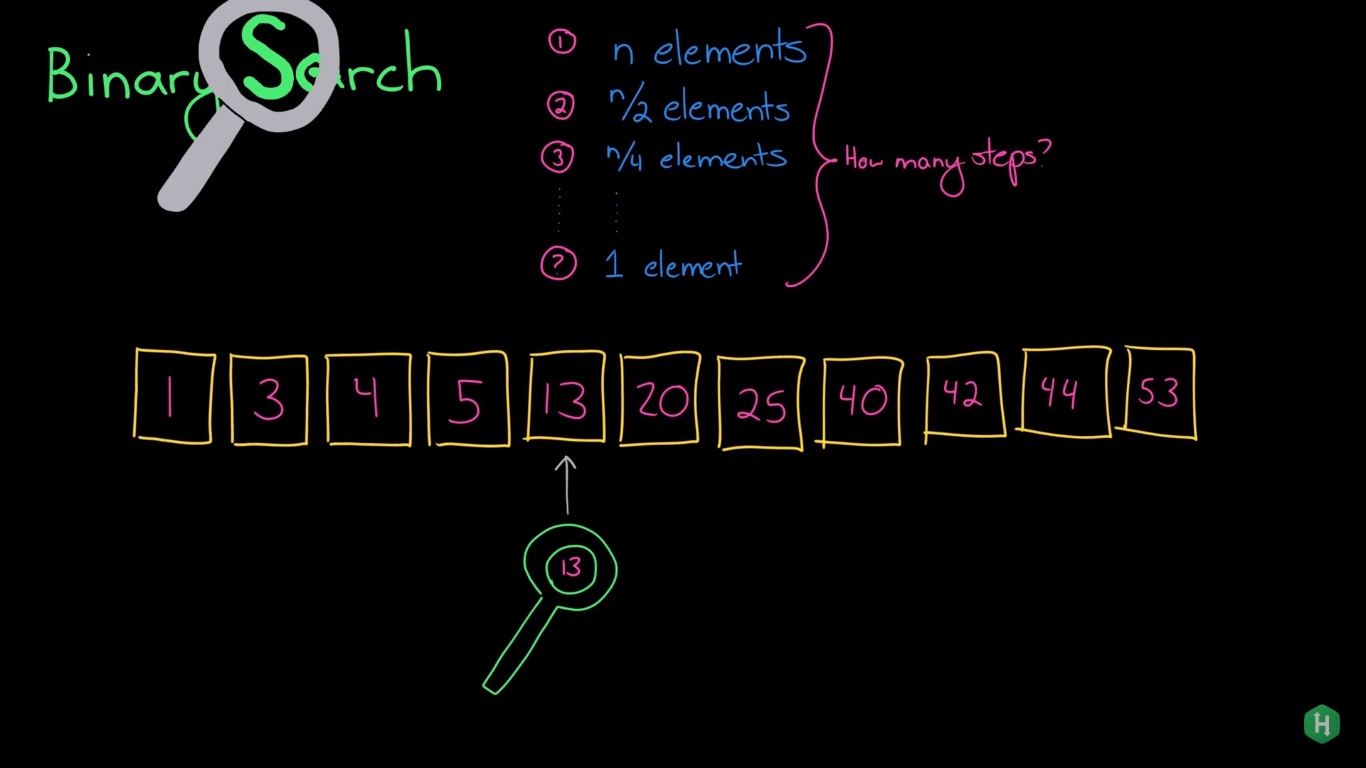 Binary Search
① n elements
② n/2 elements
③ n/4 elements
How many steps?
? 1 element
1 3 4 5 13 20 25 40 42 44 53
13
H